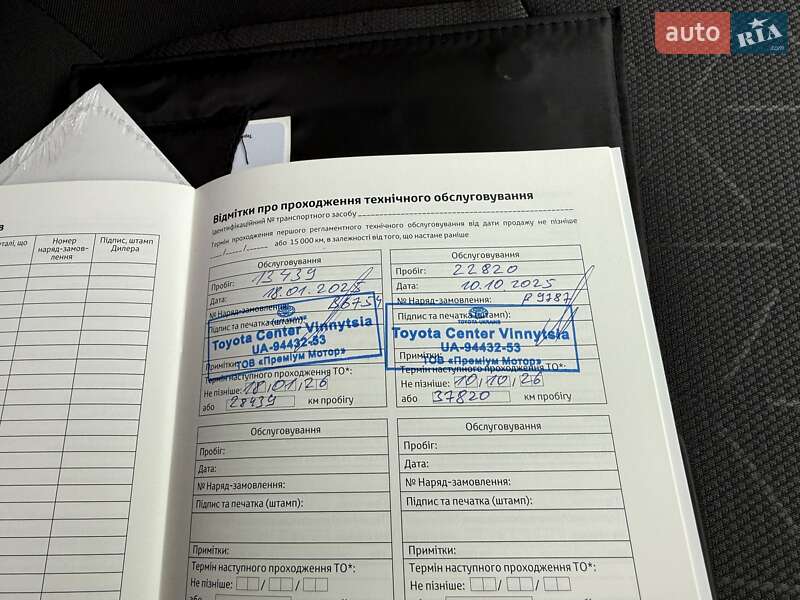 auto RIA .com
Відмітки про проходження технічного обслуговування
Ідентифікаційний № транспортного засобу
Термін проходження першого регламентного технічного обслуговування від дати продажу не пізніше
__/__/__ або 15 000 км, в залежності від того, що настане раніше
талі, що
Номер наряд-замов-лення
Підпис, штамп Дилера
Обслуговування
Пробіг: 13439
Дата: 18.01.2025
№ Наряд-замовлення: B6754
Підпис та печатка (штамп):
Toyota Center Vinnytsia
UA-94432-53
ТОВ «Преміум Мотор»
Примітки:
Термін наступного проходження ТО*:
Не пізніше: 18/01/26
або 28439 км пробігу
Обслуговування
Пробіг: 22820
Дата: 10.10.2025
№ Наряд-замовлення: P9787
Підпис та печатка (штамп):
TOYOTA UKRAINE
Toyota Center Vinnytsia
UA-94432-53
ТОВ «Преміум Мотор»
Примітки:
Термін наступного проходження ТО*:
Не пізніше: 10/10/26
або 37820 км пробігу
Обслуговування
Пробіг:
Дата:
№ Наряд-замовлення:
Підпис та печатка (штамп):
Примітки:
Термін наступного проходження ТО*:
Не пізніше:
Обслуговування
Пробіг:
Дата:
№ Наряд-замовлення:
Підпис та печатка (штамп):
Примітки:
Термін наступного проходження ТО*:
Не пізніше: